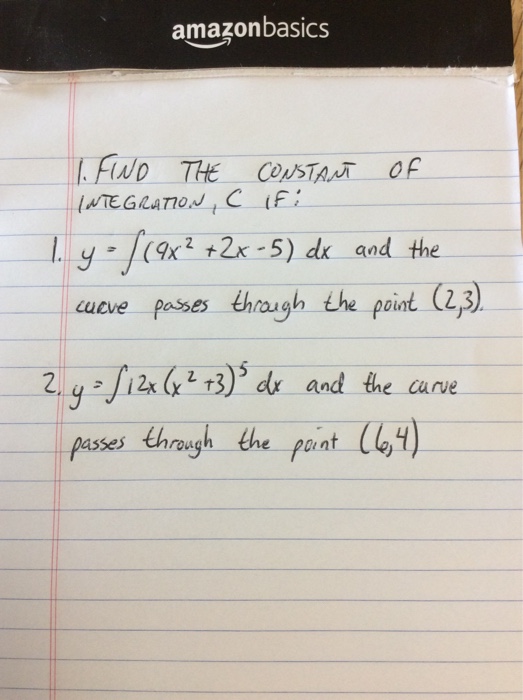 amazonbasics
1. FIND THE CONSTANT OF
INTEGRATION, C IF:
1. y = ∫(9x² +2x -5) dx and the
curve passes through the point (2,3).
2. y = ∫12x (x² +3)⁵ dx and the curve
passes through the point (6,4)